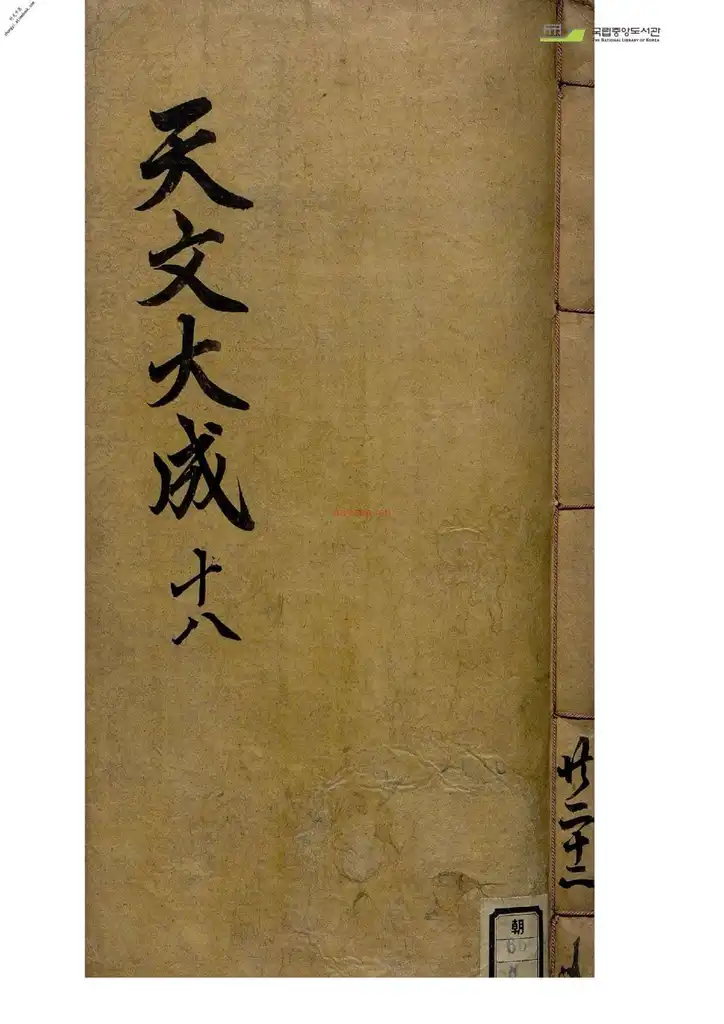 天文大成 十八
共二十二
朝
국립중앙도서관
THE NATIONAL LIBRARY OF KOREA